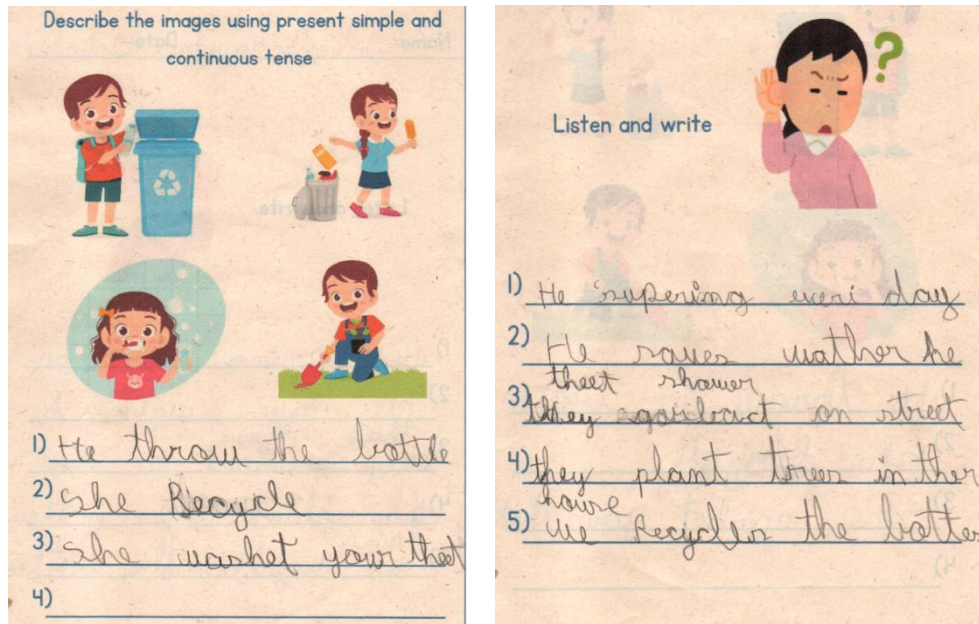 Describe the images using present simple and
continuous tense
1) He throw the bottle
2) She Recycle
3) She washet your theet
4)
Listen and write
?
1) He supering everi day
2) He saves wather he
theet shower
3) they on street
4) they plant trees in ther
house
5) We Recycles the bottes